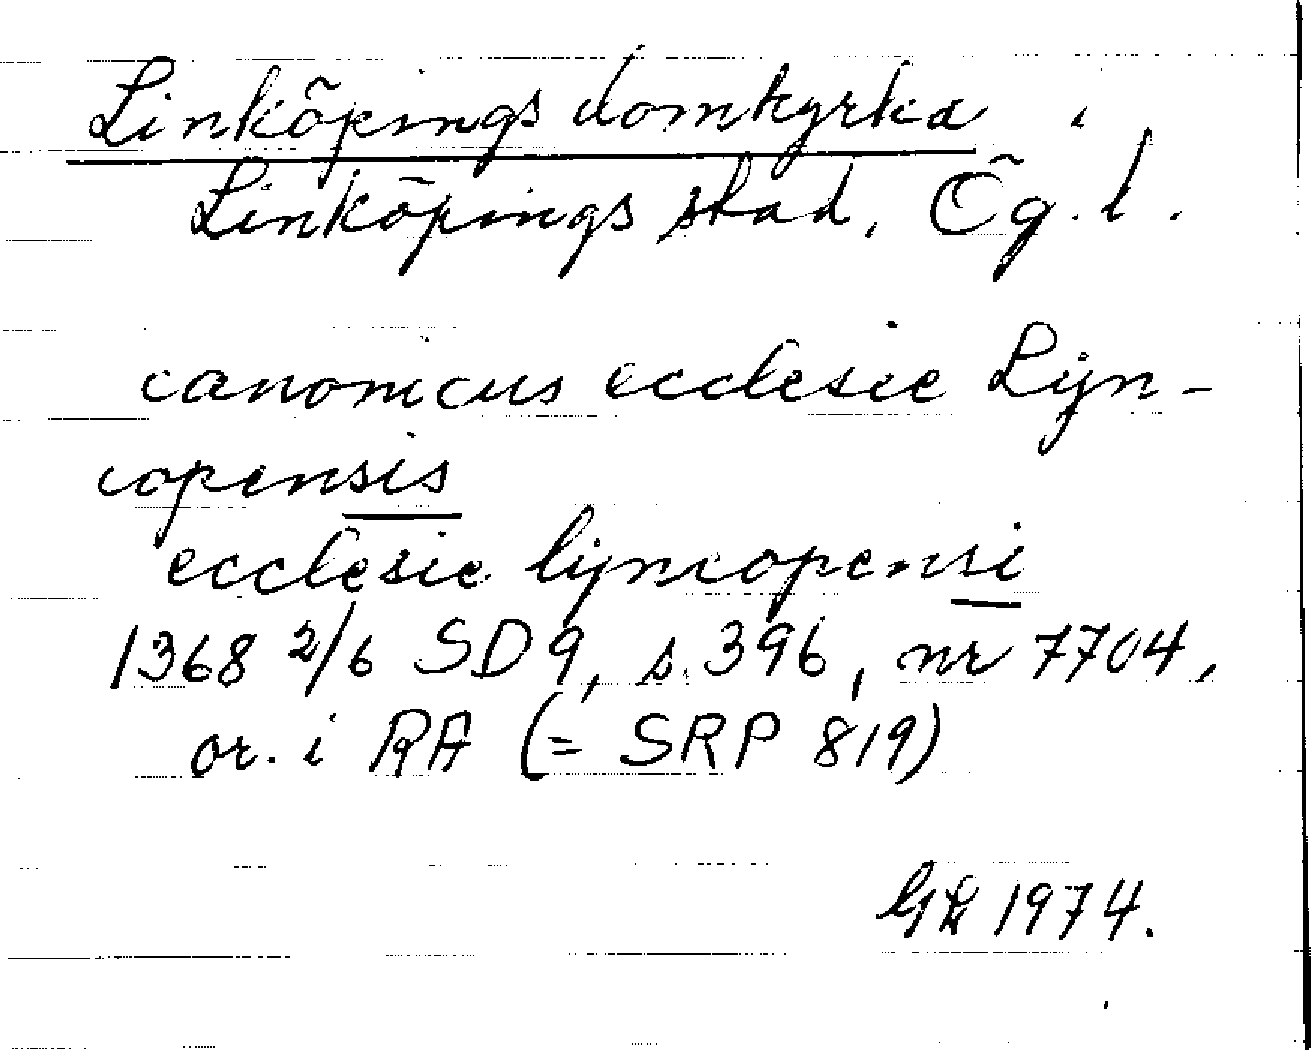 Linköpings domkyrka i
Linköpings stad, Ög. l.
canonicus ecclesie Lijn-
copensis
ecclesie lijncopensi
1368 2/6 SD 9, s. 396, nr 7704,
or. i RA (= SRP 819)
1974.